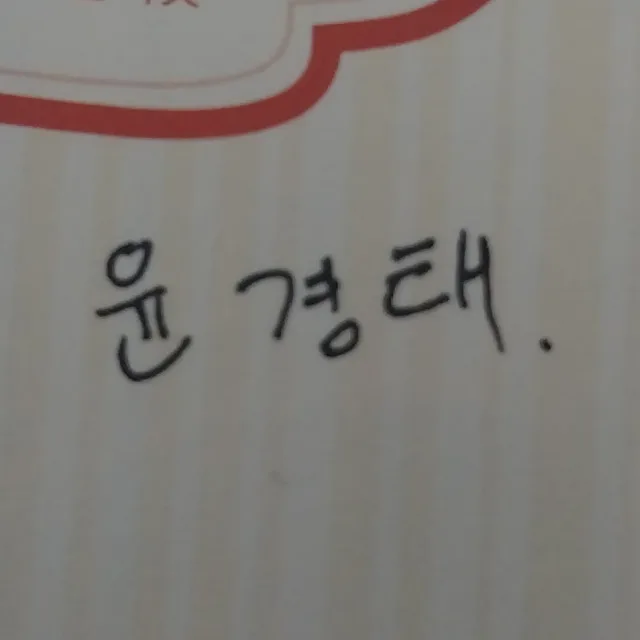 윤경태.